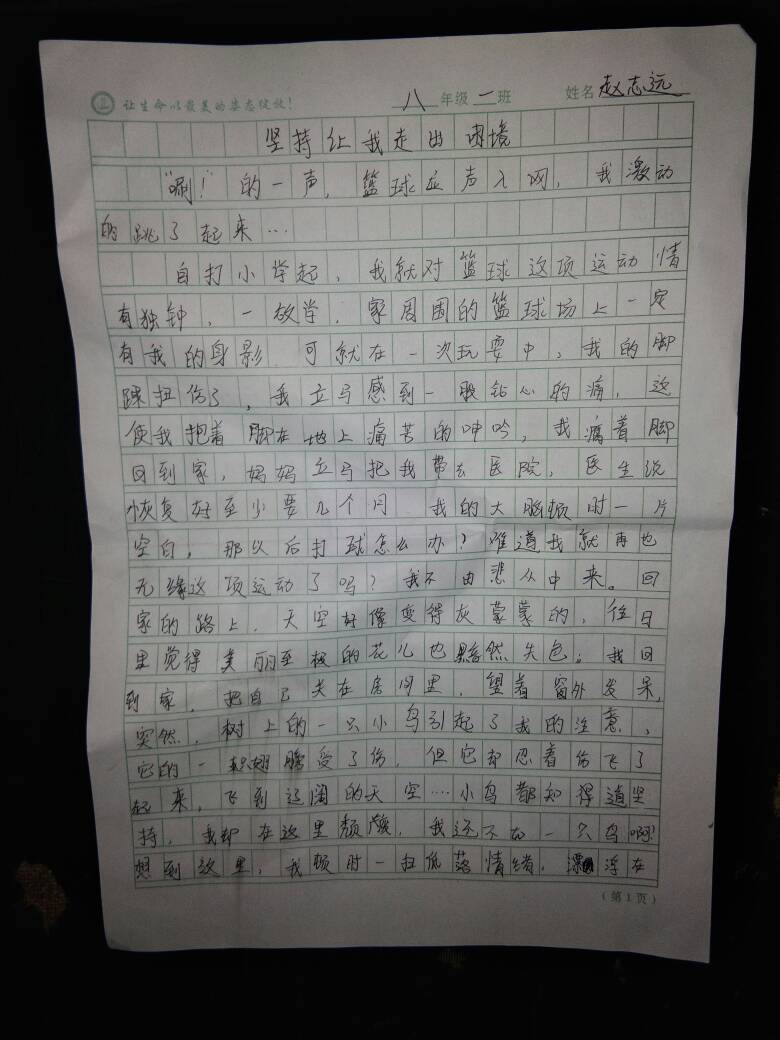 让生命以最美的姿态绽放！ 八年级一班 姓名赵志远
坚持让我走出困境
“唰！”的一声，篮球应声入网，我激动
的跳了起来…
自打小学起，我就对篮球这项运动情
有独钟，一放学，家周围的篮球场上一定
有我的身影 可就在一次玩耍中，我的脚
踝扭伤了，我立马感到一股钻心的痛，这
使我抱着脚在地上痛苦的呻吟，我瘸着脚
回到家，妈妈立马把我带去医院，医生说
恢复好至少要几个月 我的大脑顿时一片
空白，那以后打球怎么办？难道我就再也
无缘这项运动了吗？我不由悲从中来。回
家的路上，天空好像变得灰蒙蒙的，往日
里觉得美丽至极的花儿也黯然失色；我回
到家，把自己关在房间里，望着窗外发呆，
突然，树上的一只小鸟引起了我的注意，
它的一只翅膀受了伤，但它却忍着伤飞了
起来，飞到辽阔的天空…小鸟都知道坚
持，我却在这里颓废，我还不如一只鸟啊！
想到这里，我顿时一扫低落情绪，漂浮在
（第1页）